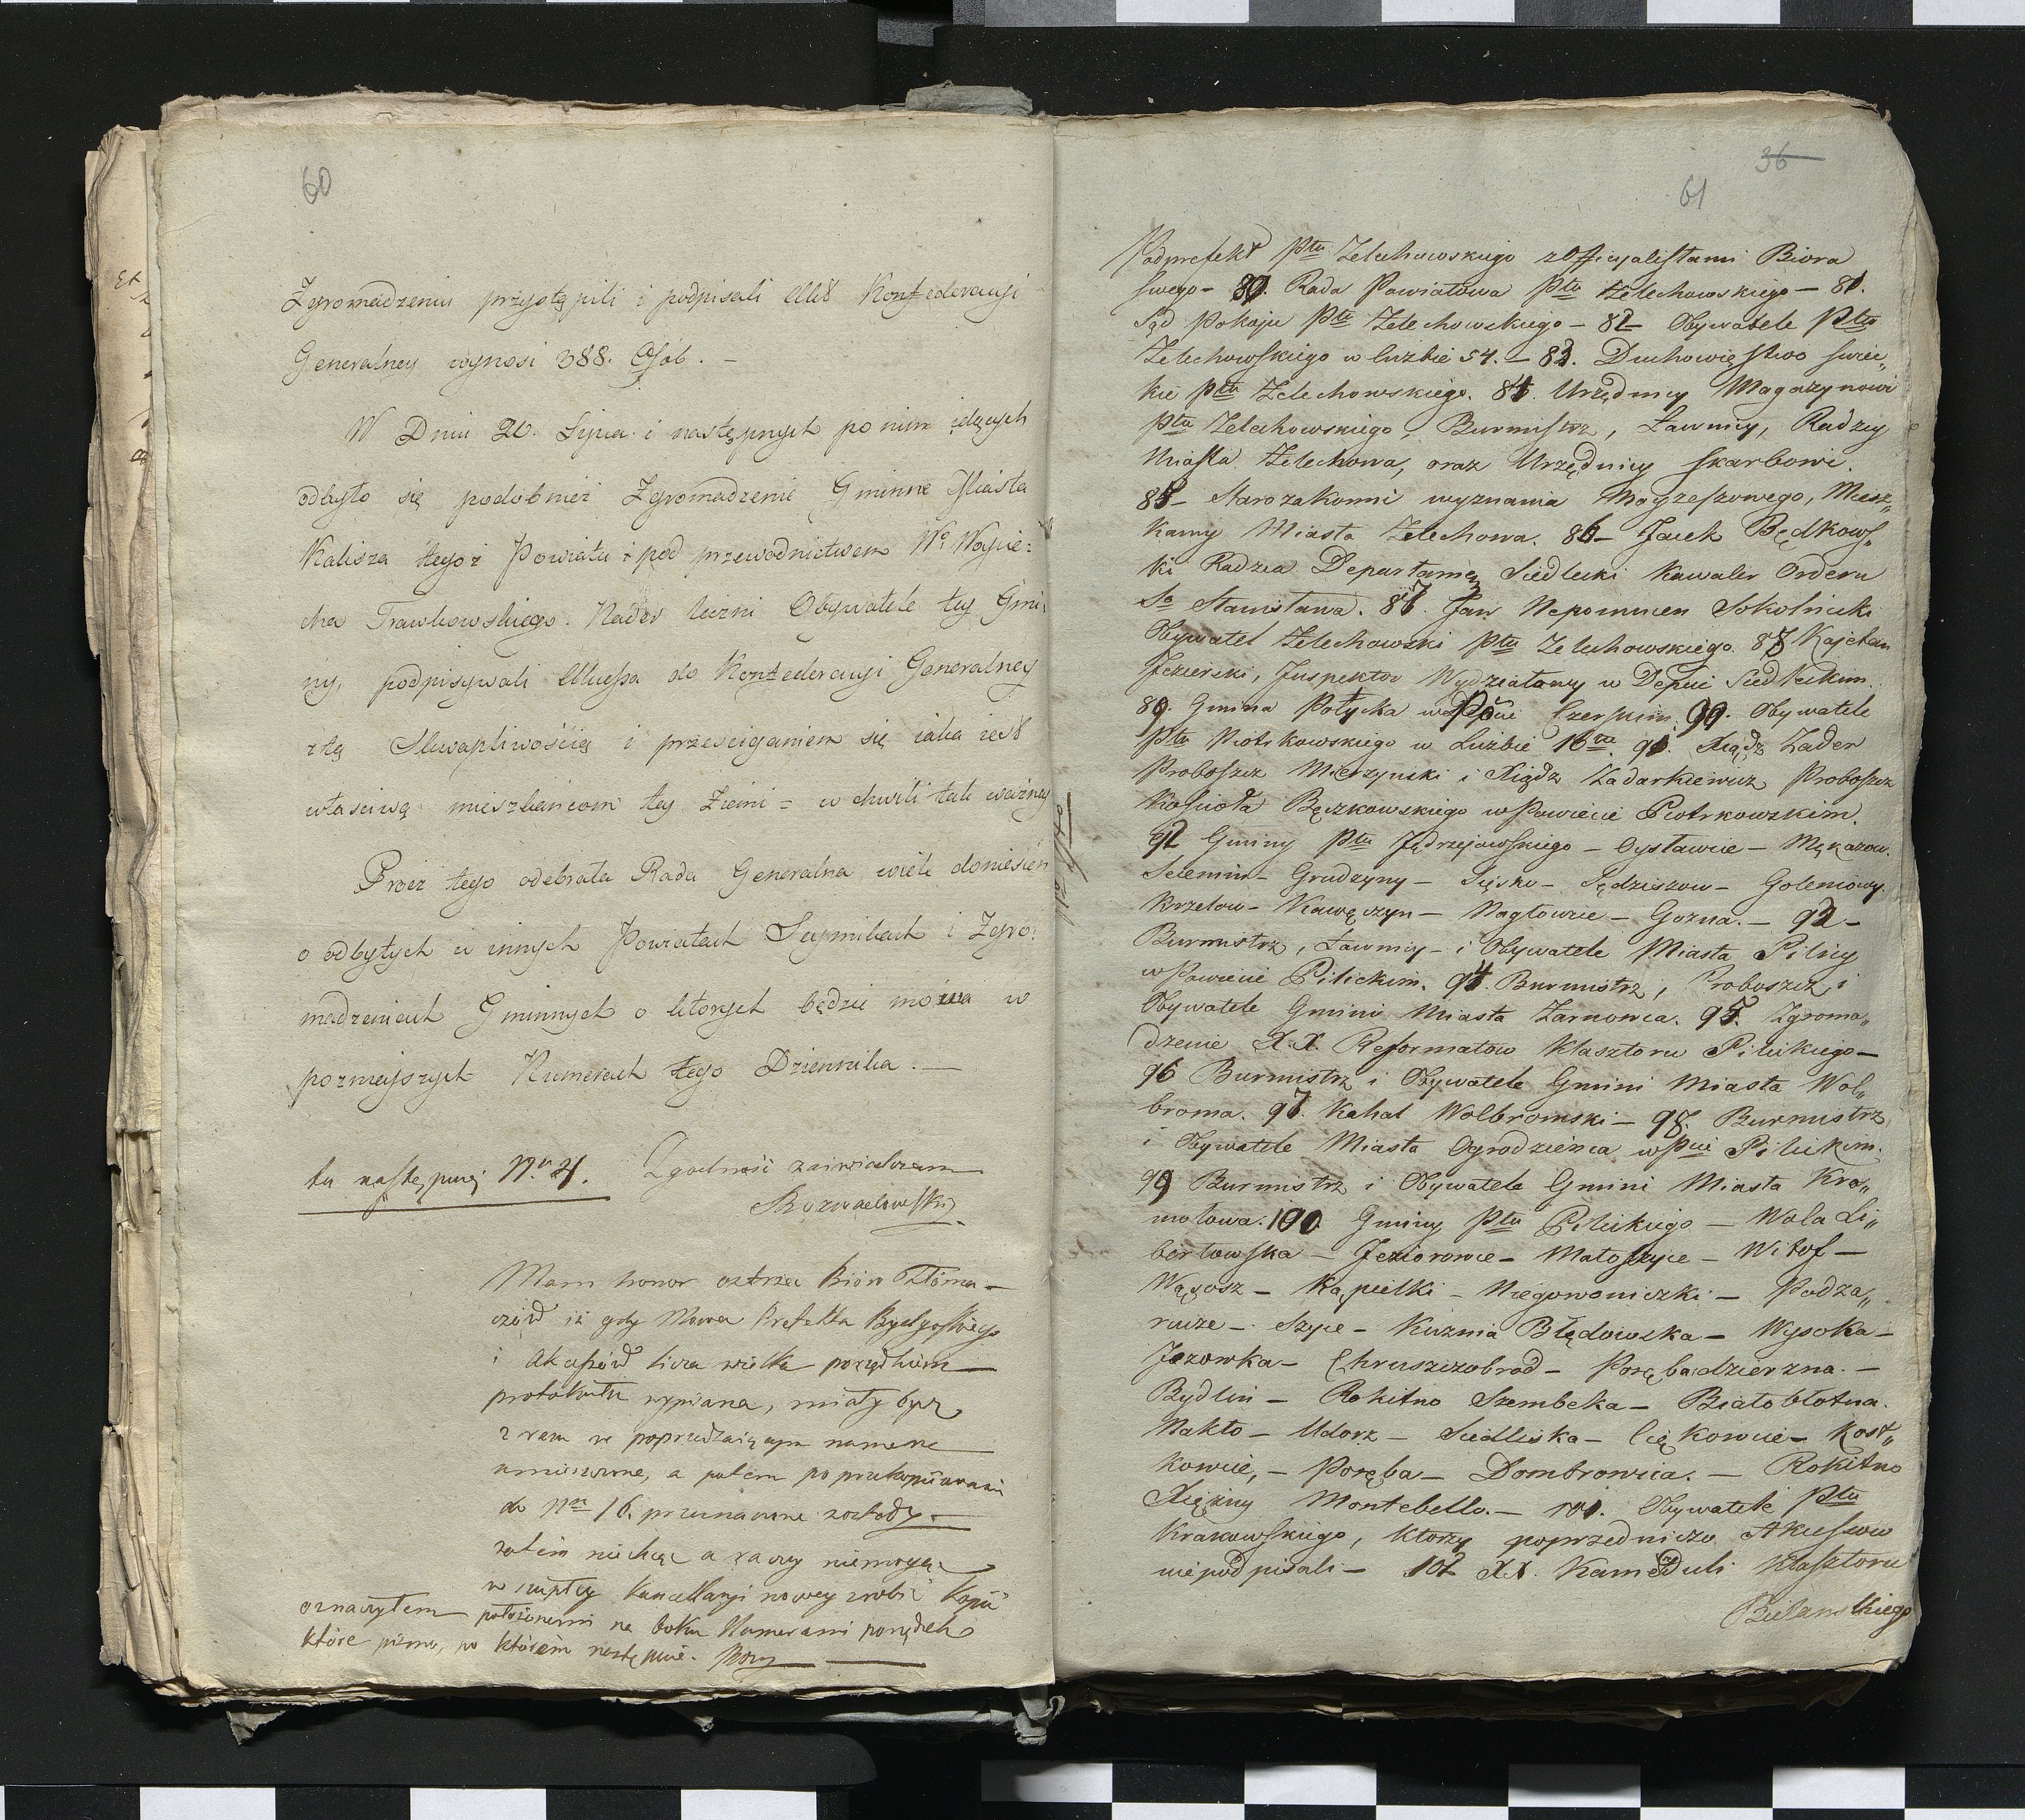 60
Zgromadzeniu przystąpili i podpisali Akt Konfederacyi
Generalney wynosi 388. Osób. –
W Dniu 20. Lipca i następnych po nim idących
odbyło się podobnież Zgromadzenie Gminne Miasta
Kalisza tegoż Powiatu pod przewodnictwem Wo Woycie:
cha Trawkowskiego. Nader liczni Obywatele tey Gmi:
ny, podpisywali Akcessa do Konfederacyi Generalney
z tą Skwapliwością i prześciganiem się iaka iest
właściwą mieszkańcom tey Ziemi = w chwili tak ważney
Prócz tego odebrała Rada Generalna wiele doniesień
o odbytych w innych Powiatach Seymikach i Zgro:
madzeniach Gminnych o których będzie mowa w
pozniejszych Numerach tego Dziennika. —
tu następuie Nr. 21. Zgodność zaświadczam
Mam honor ostrzec Bióro Tłóma–
czów iż gdy Mowa Prefekta Bydgoskiego
i Akcessów liczba wielka porządkiem
protokułu wypisana, miały być
zrazu w poprzedzaiącym numerze
umieszczone, a potem po przekopiowaniu
do Nru 16. przeznaczone zostały –
zatem niechcąc a raczey niemogąc
w szczupłey Kancellaryi nowey zrobić Kopii
oznaczyłem położonemi na boku Numerami porządek
które pismo, po którém następuie.
36
61
Podprefekt Ptu Zelechowskiego z Officyalistami Biora
swego – 80. Rada Powiatowa Ptu Zelechowskiego – 81.
Sąd Pokoju Ptu Zelechowskiego – 82 – Obywatele Ptu
Zelechowskiego w liczbie 54. – 83. Duchowięstwo świec„
kie Ptu Zelechowskiego. 84. Urzędnicy Magazynowi
Ptu Zelechowskiego, Burmistrz, Ławnicy, Radzcy
Miasta Zelechowa, oraz Urzędnicy skarbowi.
85 – Starozakonni wyznania Moyżeszowego, Miesz„
kańcy Miasta Zelechowa. 86 – Jacek Będkows„
ki Radzca Departamen Siedlecki Kawaler Orderu
So Stanisława. 87. Jan Nepomucen Sokolnicki
Obywatel Zelechowski Ptu Zelechowskiego. 88 Kajetan
Jezierski, Inspektor Wydziałowy w Depcie Siedleckim.
89. Gmina Potycka w Pcie Czerskim. 90. Obywatele
Ptu Piotrkowskiego w Liczbie 16tu. 91. Xiądz Zader
Proboszcz Mierzynski i Xiądz Zadarkiewicz Proboszcz
Kościoła Bęczkowskiego w Powiecie Piotrkowskim.
92 Gminy Ptu Jędrzejowskiego – Oysławice – Mękarzow.
Sciemin – Grudzyny – Sięsko – Sędziszow – Goleniowy.
Krzelow – Kawęczyn – Nagłowice – Gozna. – 93 –
Burmistrz, Ławnicy – i Obywatele Miasta Pilicy
w Powiecie Pilickim. 94. Burmistrz, Proboszcz i
Obywatele Gmini Miasta Żarnowca. 95. Zgroma„
dzenie X.X. Reformatow Klasztoru Pilickiego –
96 Burmistrz i Obywatele Gmini Miasta Wol„
broma. 97. Kahał Wolbromski – 98. Burmistrz
i Obywatele Miasta Ogrodzieńca w Pcie Pilickim.
99 Burmistrz i Obywatele Gmini Miasta Kro„
mołowa. 100 Gminy Ptu Pilickiego – Wola Li„
bertowska – Jeziorowice – Małoszyce –
Wąsosz – Kąpielki – Niegowoniczki – Podza„
rucze – Szyce – Kuznia Błędowska – Wysoka –
Jozowka – Chruszczobrod – Poręba dzierzna. –
Bydlin – Rokitno Szembeka – Białobłotna.
Nakło – Udorz – Siedliska – Ciękowice – Kost„
kowice, – Poręba – Dombrowica. – Rokitno
Xiężny Montebello. – 101. Obywatele Ptu
Krakowskiego, ktorzy poprzedniczo Akcesow
nie podpisali – 102 XX. Kameduli Klasztoru
Bielanskiego